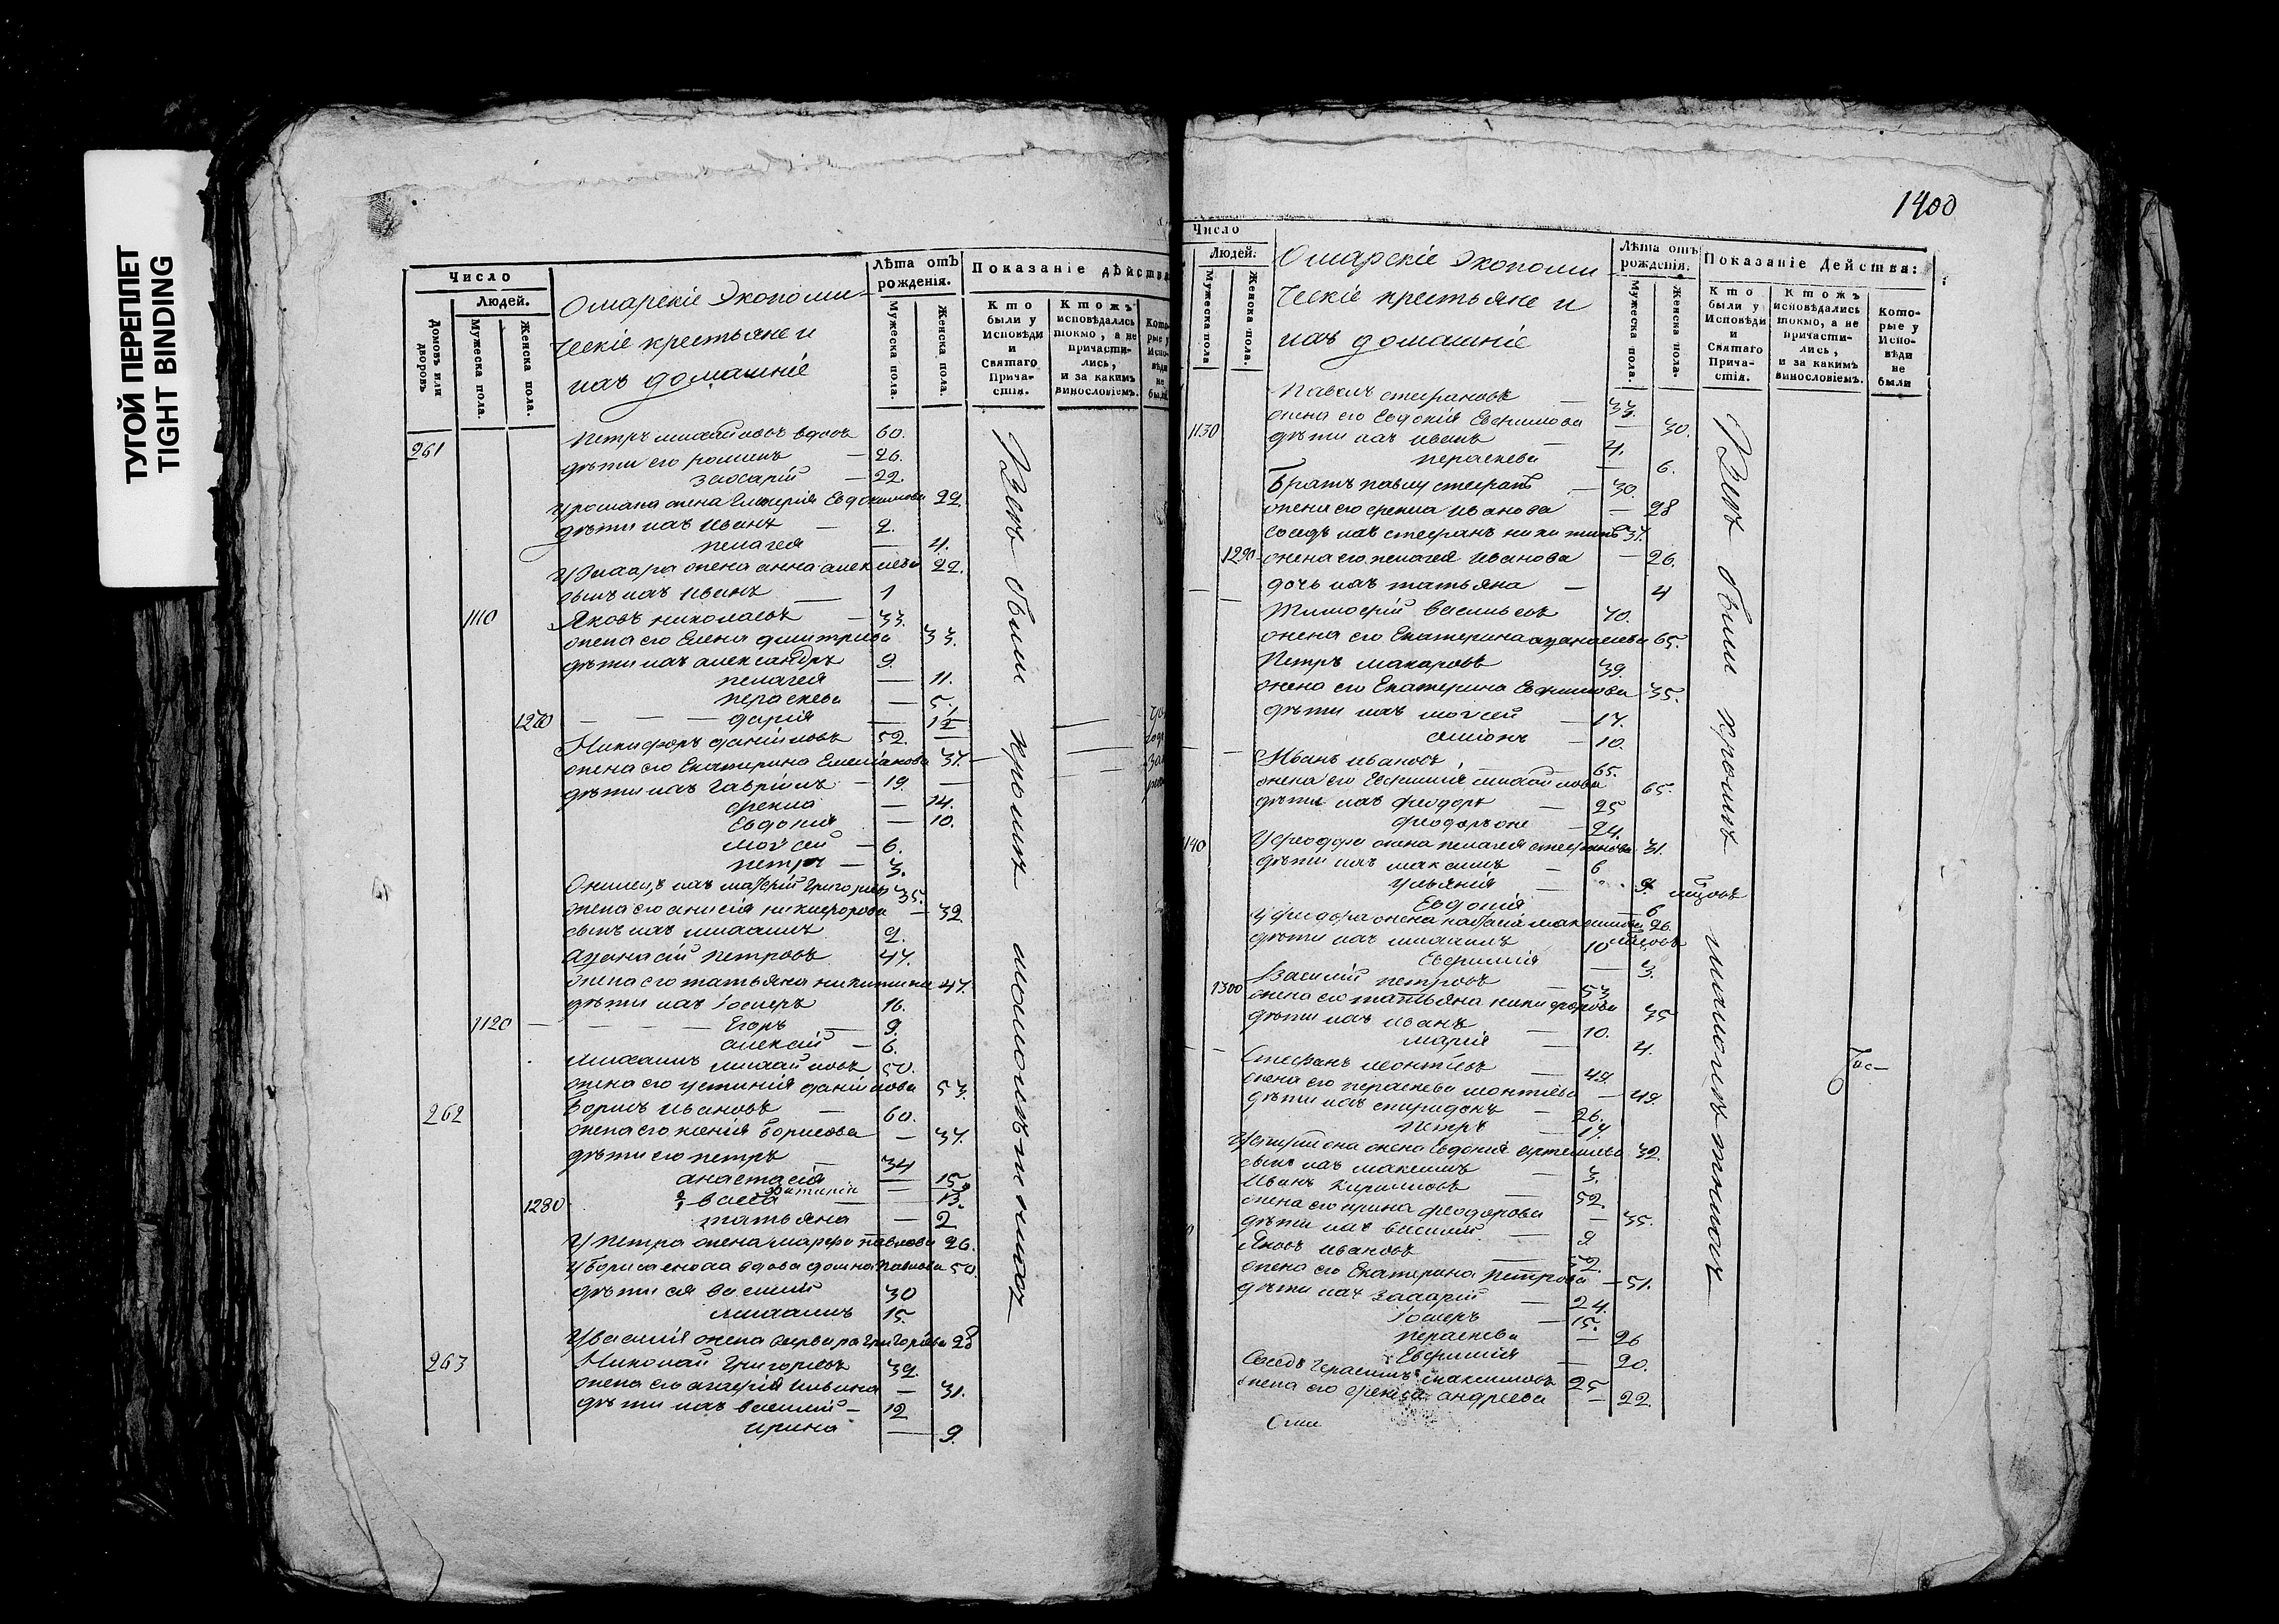 ТУГОЙ ПЕРЕПЛЕТ
TIGHT BINDING
Число
Людей.
Домовъ или дворовъ
Мужеска пола.
Женска пола.
Омарскіе Экономи-
ческіе крестьяне и
ихъ домашніе
Лѣта отъ рожденія.
Мужеска пола.
Женска пола.
Показаніе дѣйства
Кто были у Исповѣди и Святаго Прича-стія.
Ктожъ исповѣдались токмо, а не причасти-лись, и за какимъ винословіемъ.
261 Петръ михайловъ вдовъ 60.
дѣти его романъ — 26.
захарій — 22.
у романа жена Евдокимова 22.
дѣти ихъ Иванъ — 2.
пелагея — 4.
у захара жена анна 22.
сынъ ихъ Иванъ — 1
1110 Яковъ николаевъ — 33.
жена его Елена дмитриева 33.
дѣти ихъ александръ 9.
пелагея — 11.
параскева — 5.
1270 — — — дарія —
Никифоръ даніиловъ 52. —
жена его Екатерина Емелианова 37.
дѣти ихъ Гавріилъ — 19. —
фекла — 14.
Евдокія — 10.
мойсей — 6.
петръ — 3.
ихъ григорьевъ 35.
жена его анисія никифорова — 32.
сынъ ихъ михаилъ 2.
афанасій петровъ 47.
жена его татьяна никитина 47.
дѣти ихъ Іосифъ 16.
1120 — — — — Егоръ — 9.
алексій — 6.
михаилъ михайловъ 50.
жена его устинія даніилова 53.
262 Борисъ Ивановъ — 60.
жена его ксенія борисова — 37.
дѣти его петръ — 34
анастасія — 15
1280 васса — 13.
татьяна — 2
у петра жена марфа павлова 26.
у бориса сноха вдова домна павлова 50.
дѣти ея василий 30
михаилъ 15.
у василія жена варвара григорьева 28
263 Николай григорьевъ 32.
жена его агафія ильина — 31.
дѣти ихъ василий — 12
ирина — 9.
Всѣ были кромѣ малолѣтнихъ
1400
Число
Людей.
Мужеска пола
Женска пола.
Омарскіе Экономи-
ческіе крестьяне и
ихъ домашніе
Лѣта отъ рожденія.
Мужеска пола.
Женска пола.
Показаніе Действа:
Кто были у Исповѣди и Святаго Прича-стія.
Ктожъ исповѣдались токмо, а не причасти-лись, и за какимъ винословіемъ.
Кото-рые у Испо-вѣди не были
Павелъ стефановъ —
жена его Евдокія Ефимова — 30.
1130 дѣти ихъ иванъ — 4.
параскева — 6.
Братъ павлу стефанъ — 30.
жена его фекла Иванова — 28
сосѣдъ ихъ стефанъ никитинъ 37.
1290 жена его пелагея Иванова — 26.
дочь ихъ татьяна — 4
Тимофей васильевъ 70.
жена его Екатерина афанасьева 65.
Петръ макаровъ 39.
жена его Екатерина Ефимова 35.
дѣти ихъ мойсей — 17.
симіонъ — 10.
Иванъ ивановъ — 65.
жена его Евфимія михайлова 65.
дѣти ихъ феодоръ — 25
феодоръ же — 24.
1140 у феодора жена пелагея стефанова 31.
дѣти ихъ максимъ — 6
ульянія — 9.
Евдокія — 6
у феодора жена наталія максимова 26.
дѣти ихъ михаилъ 10
Евфимія — 3.
Василій петровъ — 53
1300 жена его татьяна никифорова 35
дѣти ихъ иванъ — 10.
марія — 4.
Стефанъ леонтьевъ — 49.
жена его параскева леонтьева — 49.
дѣти ихъ спиридонъ — 26.
петръ — 17.
у спиридона жена Евдокія артемьева 32.
сынъ ихъ максимъ — 3.
Иванъ Кириловъ — 52.
жена его ирина феодорова — 35.
дѣти ихъ василий — 9
Яковъ ивановъ — 52.
жена его Екатерина петрова — 51.
дѣти ихъ захарій — 24.
Іосифъ — 15.
параскева — 26
Евфимія — 20.
Сосѣдъ герасимъ максимовъ 25
жена его фекла андреева — 22.
Всѣ были кромѣ малолѣтнихъ